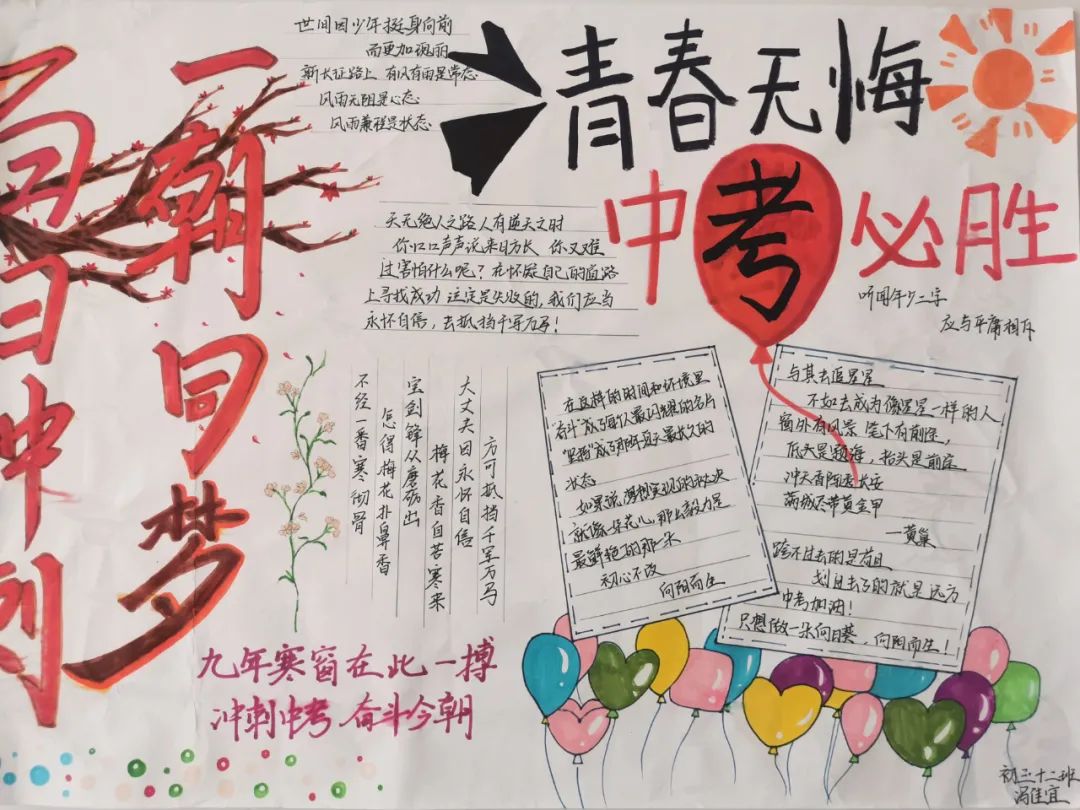 百日冲刺
一朝同梦
世间因少年挺身向前
而更加瑰丽
新长征路上 有风有雨是常态
风雨无阻是心态
风雨兼程是状态
青春无悔
中考必胜
听闻年少二字
应与平庸相斥
天无绝人之路 人有逆天之时
你口口声声说来日方长 你又难
过害怕什么呢？在怀疑自己的道路
上寻找成功 这定是失败的，我们应当
永怀自信，去抵挡千军万马！
方可抵挡千军万马
大丈夫因永怀自信
梅花香自苦寒来
宝剑锋从磨砺出
怎得梅花扑鼻香
不经一番寒彻骨
在这样的时间和环境里
"奋斗"成了每个人最闪耀的名片
"坚持"成了那年夏天最长久的
状态
如果说，理想实现的秘诀
就像一朵花儿，那么毅力是
最鲜艳的那一朵
初心不改
向阳而生
与其去追星星
不如去成为像星星一样的人
窗外有风景 笔下有前途，
低头是题海，抬头是前途
冲天香阵透长安
满城尽带黄金甲
—黄巢
跨不过去的是苟且
跨过去了的就是远方
中考加油！
只想做一朵向日葵，向阳而生！
九年寒窗在此一搏
冲刺中考 奋斗今朝
初三十二班
冯佳宜